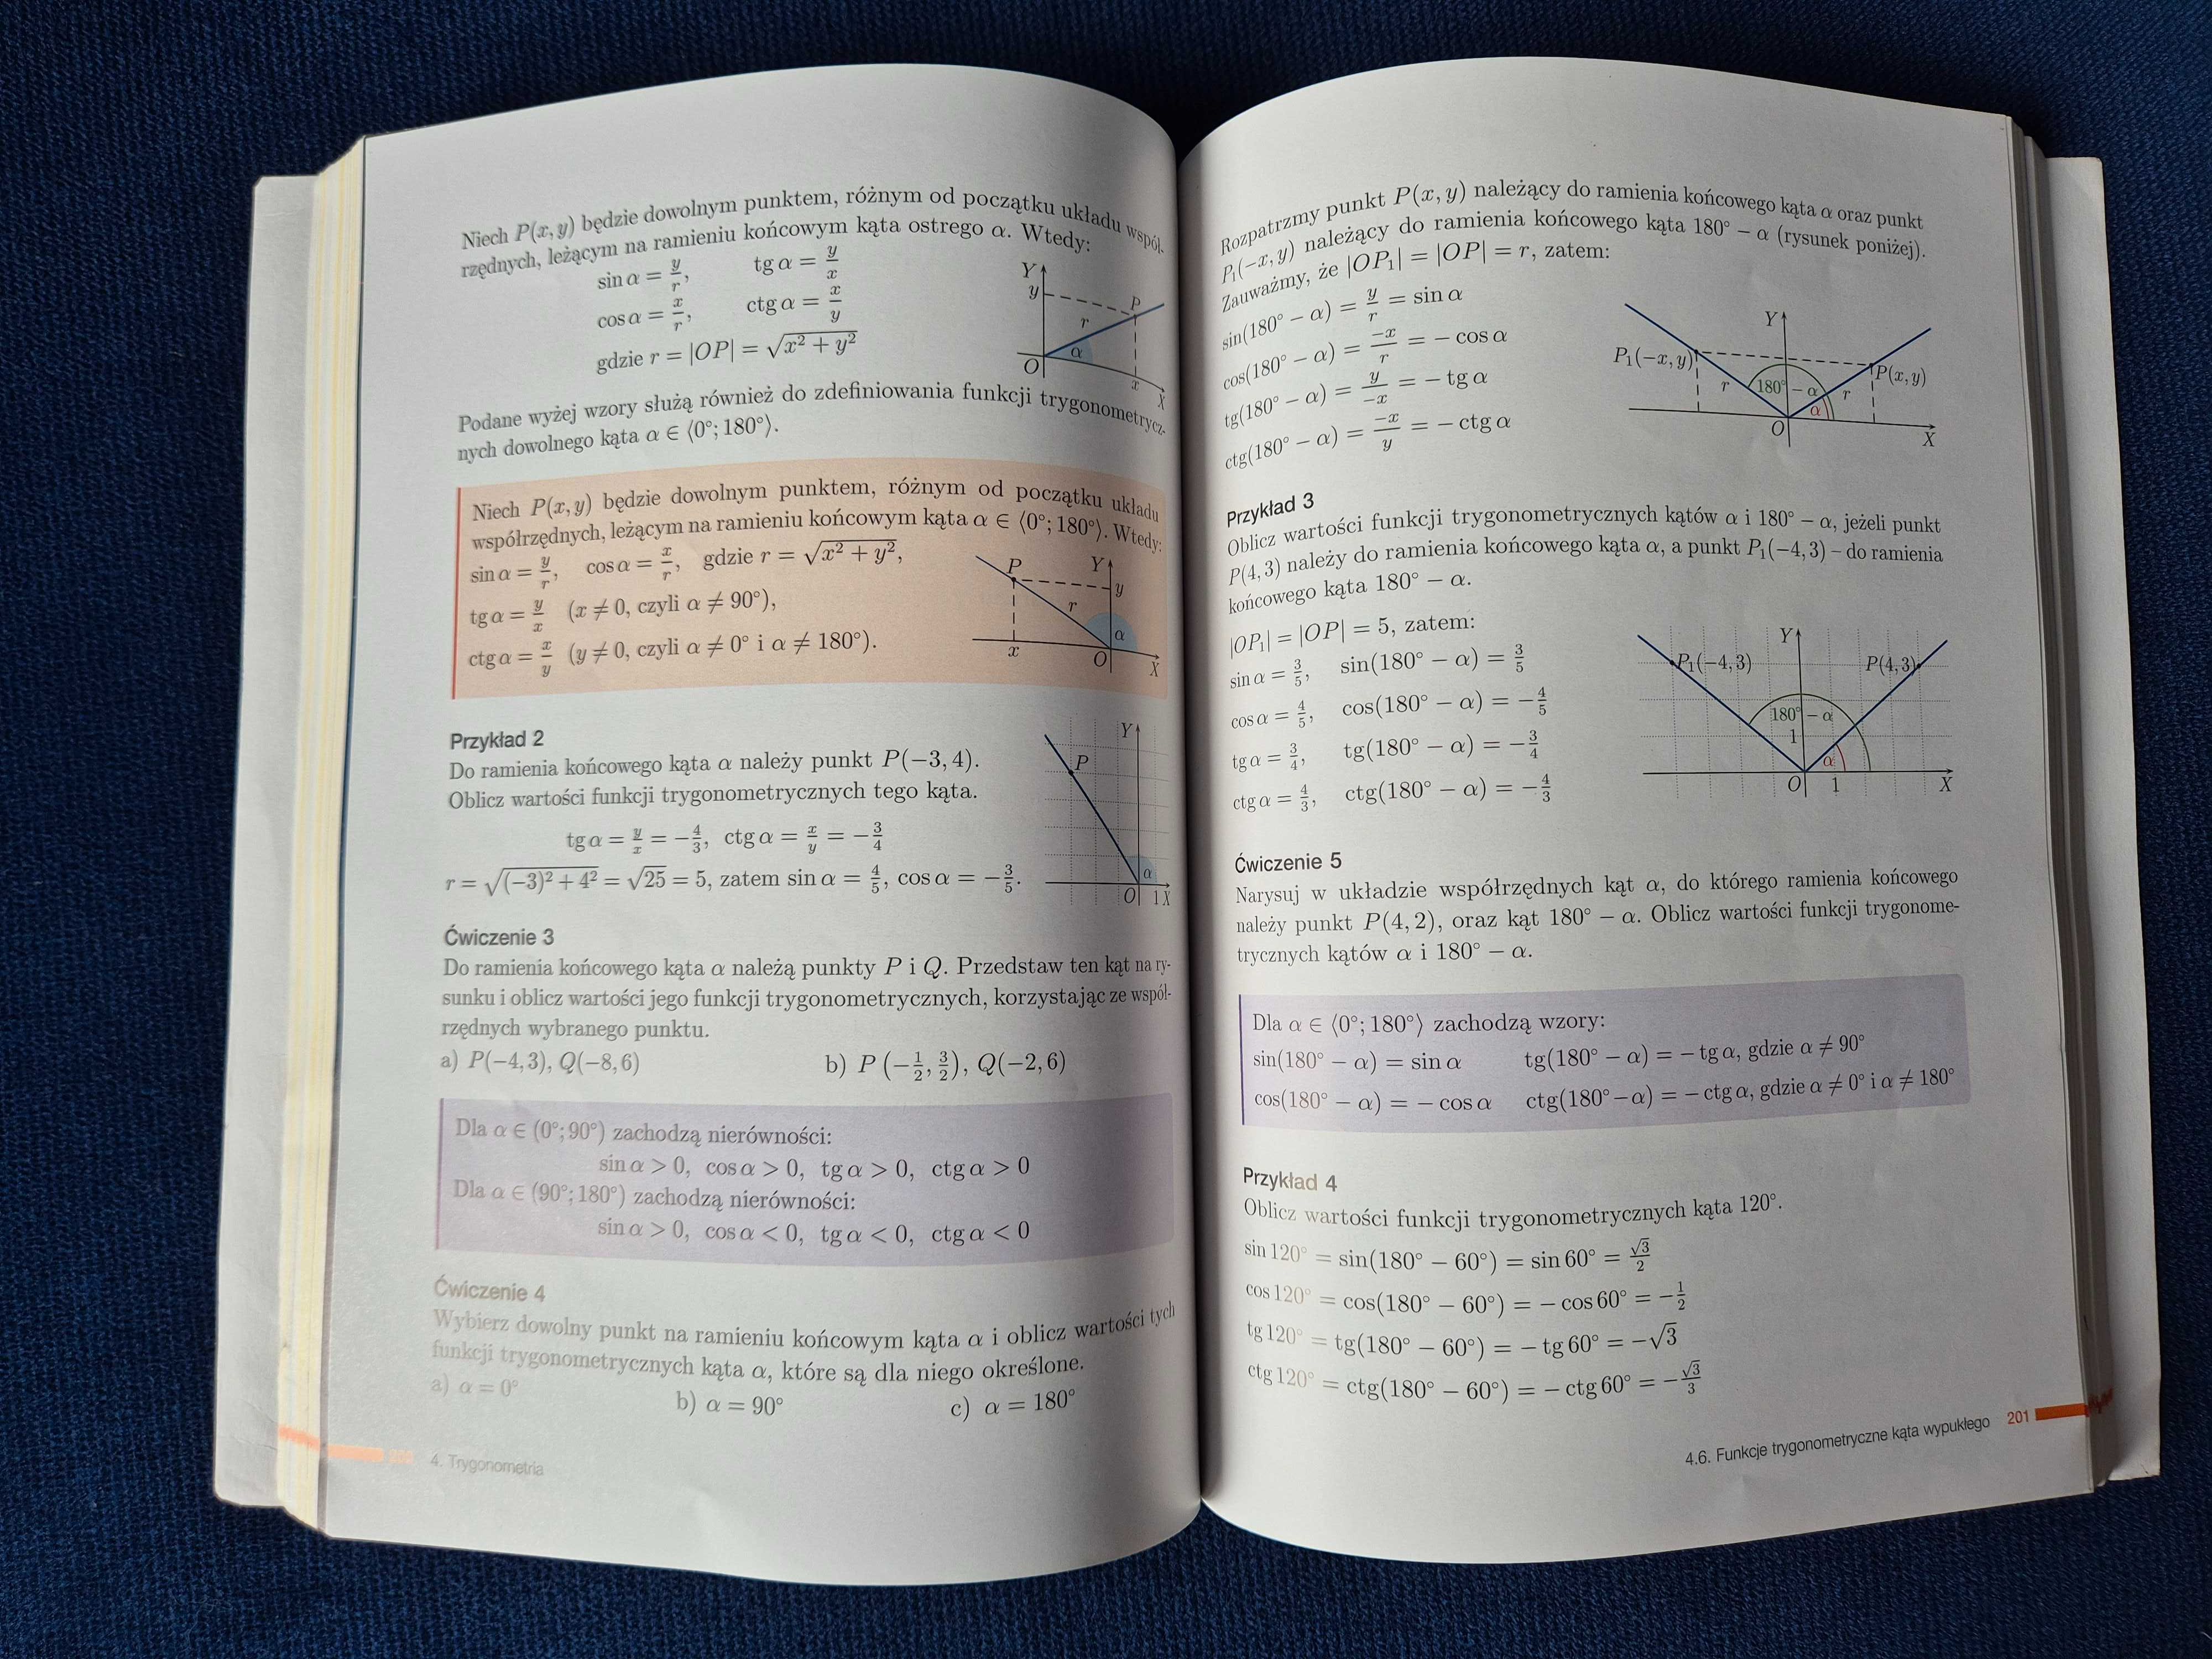 Niech P(x, y) będzie dowolnym punktem, różnym od początku układu współ-
rzędnych, leżącym na ramieniu końcowym kąta ostrego α. Wtedy:
sin α = y/r, tg α = y/x
cos α = x/r, ctg α = x/y
gdzie r = |OP| = √(x² + y²)
Y
y
P
r
α
O
x
X
Podane wyżej wzory służą również do zdefiniowania funkcji trygonometrycz-
nych dowolnego kąta α ∈ ⟨0°; 180°⟩.
Niech P(x, y) będzie dowolnym punktem, różnym od początku układu
współrzędnych, leżącym na ramieniu końcowym kąta α ∈ ⟨0°; 180°⟩. Wtedy:
sin α = y/r, cos α = x/r, gdzie r = √(x² + y²),
tg α = y/x (x ≠ 0, czyli α ≠ 90°),
ctg α = x/y (y ≠ 0, czyli α ≠ 0° i α ≠ 180°).
P
Y
y
r
α
x
O
X
Przykład 2
Do ramienia końcowego kąta α należy punkt P(−3, 4).
Oblicz wartości funkcji trygonometrycznych tego kąta.
tg α = y/x = −4/3, ctg α = x/y = −3/4
r = √((−3)² + 4²) = √25 = 5, zatem sin α = 4/5, cos α = −3/5.
Y
P
α
O 1 X
Ćwiczenie 3
Do ramienia końcowego kąta α należą punkty P i Q. Przedstaw ten kąt na ry-
sunku i oblicz wartości jego funkcji trygonometrycznych, korzystając ze współ-
rzędnych wybranego punktu.
a) P(−4, 3), Q(−8, 6) b) P(−1/2, 3/2), Q(−2, 6)
Dla α ∈ (0°; 90°) zachodzą nierówności:
sin α > 0, cos α > 0, tg α > 0, ctg α > 0
Dla α ∈ (90°; 180°) zachodzą nierówności:
sin α > 0, cos α < 0, tg α < 0, ctg α < 0
Ćwiczenie 4
Wybierz dowolny punkt na ramieniu końcowym kąta α i oblicz wartości tych
funkcji trygonometrycznych kąta α, które są dla niego określone.
a) α = 0° b) α = 90° c) α = 180°
4. Trygonometria
Rozpatrzmy punkt P(x, y) należący do ramienia końcowego kąta α oraz punkt
P₁(−x, y) należący do ramienia końcowego kąta 180° − α (rysunek poniżej).
Zauważmy, że |OP₁| = |OP| = r, zatem:
sin(180° − α) = y/r = sin α
cos(180° − α) = −x/r = − cos α
tg(180° − α) = y/−x = − tg α
ctg(180° − α) = −x/y = − ctg α
Y
P₁(−x, y)
P(x, y)
r 180° − α r
α
O
X
Przykład 3
Oblicz wartości funkcji trygonometrycznych kątów α i 180° − α, jeżeli punkt
P(4, 3) należy do ramienia końcowego kąta α, a punkt P₁(−4, 3) – do ramienia
końcowego kąta 180° − α.
|OP₁| = |OP| = 5, zatem:
sin α = 3/5, sin(180° − α) = 3/5
cos α = 4/5, cos(180° − α) = −4/5
tg α = 3/4, tg(180° − α) = −3/4
ctg α = 4/3, ctg(180° − α) = −4/3
Y
P₁(−4, 3) P(4, 3)
180° − α
1
α
O 1 X
Ćwiczenie 5
Narysuj w układzie współrzędnych kąt α, do którego ramienia końcowego
należy punkt P(4, 2), oraz kąt 180° − α. Oblicz wartości funkcji trygonome-
trycznych kątów α i 180° − α.
Dla α ∈ ⟨0°; 180°⟩ zachodzą wzory:
sin(180° − α) = sin α tg(180° − α) = − tg α, gdzie α ≠ 90°
cos(180° − α) = − cos α ctg(180° − α) = − ctg α, gdzie α ≠ 0° i α ≠ 180°
Przykład 4
Oblicz wartości funkcji trygonometrycznych kąta 120°.
sin 120° = sin(180° − 60°) = sin 60° = √3/2
cos 120° = cos(180° − 60°) = − cos 60° = −1/2
tg 120° = tg(180° − 60°) = − tg 60° = −√3
ctg 120° = ctg(180° − 60°) = − ctg 60° = −√3/3
4.6. Funkcje trygonometryczne kąta wypukłego 201